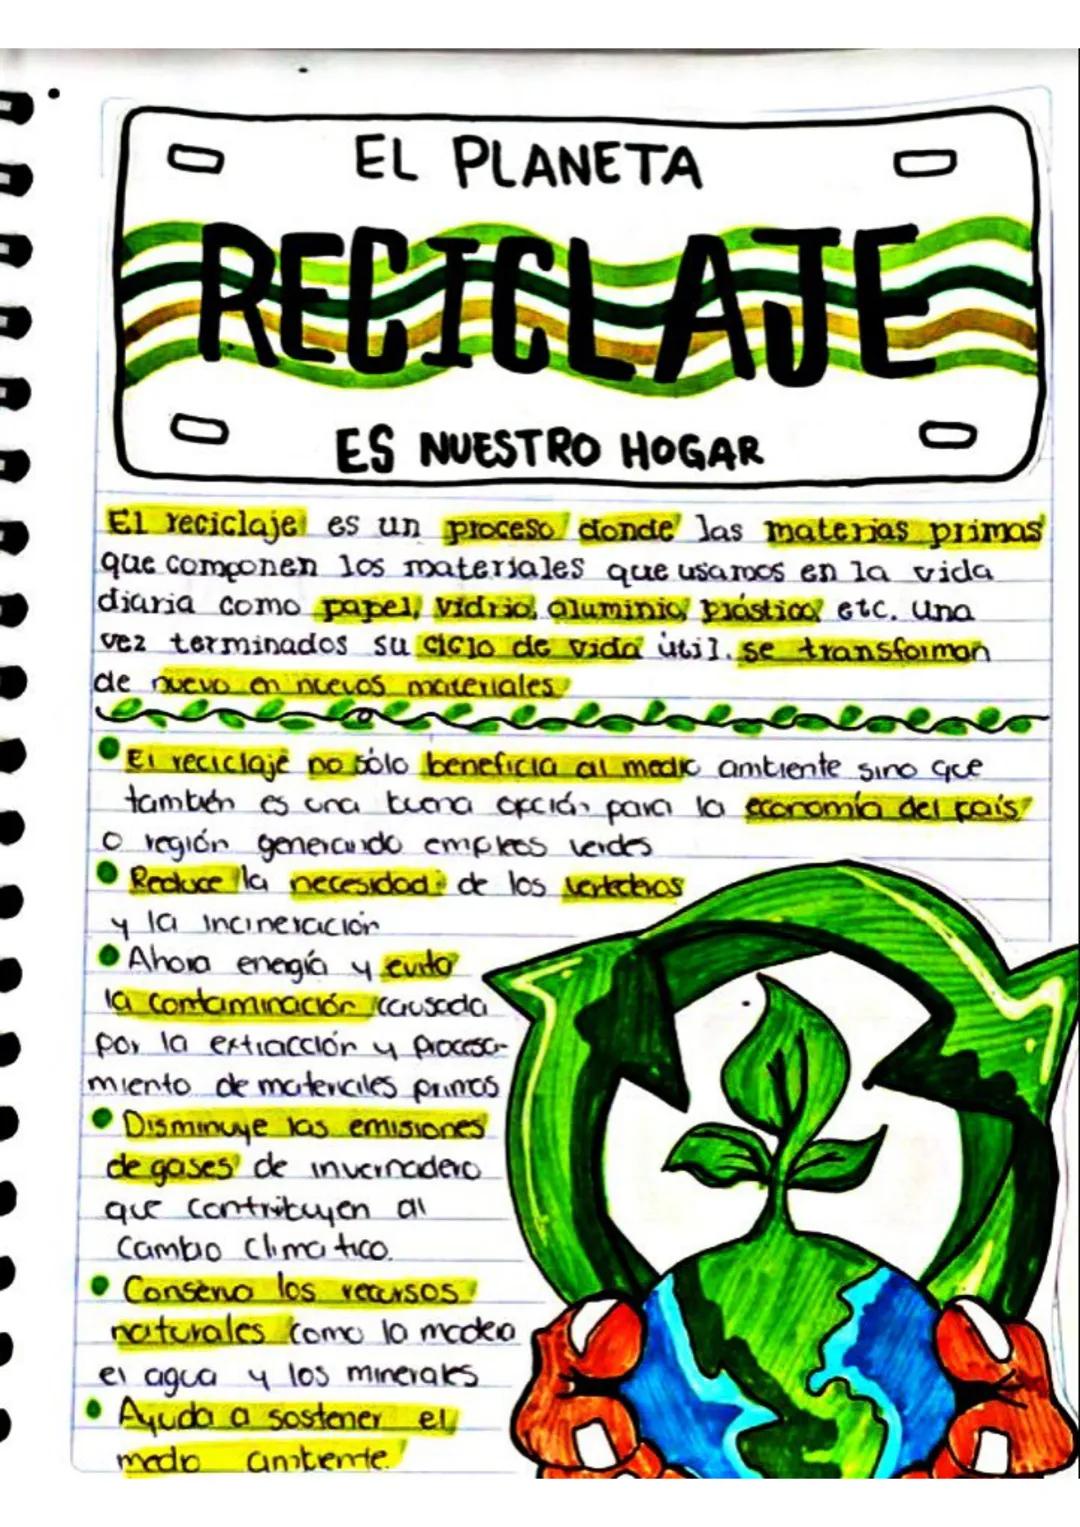 EL PLANETA
RECICLAJE
ES NUESTRO HOGAR
El reciclaje es un proceso donde las materias primas
que componen los materiales que usamos en la vida
diaria como papel, vidrio, aluminio, plástico, etc. una
vez terminados su ciclo de vida útil. se transforman
de nuevo en nuevos materiales.
El reciclaje no sólo beneficia al medio ambiente sino que
también es una buena opción para la economía del país
o región generando empleos verdes
Reduce la necesidad de los vertederos
y la incineración
Ahora energía y evita
la contaminación causada
por la extracción y procesa-
miento de materiales primas
Disminuye las emisiones
de gases de invernadero
que contribuyen al
Cambio Climatico.
Conserva los recursos
naturales como la madera
el agua y los minerales
Ayuda a sostener el
medio ambiente.